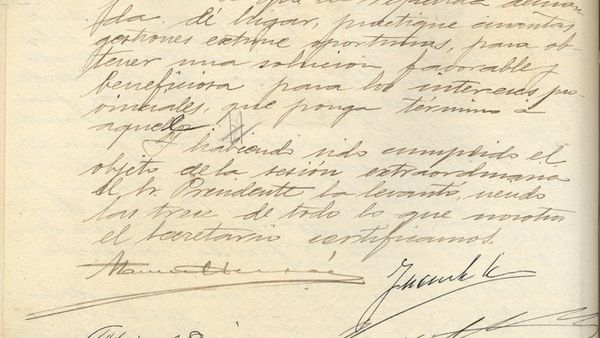 que la
da. dé lugar, practique cuantas
gestiones estime oportunas, para ob-
tener una solución favorable y
beneficiosa para los intereses pro-
vinciales, que ponga término a
aquella.
Y habiendo sido cumplido el
objeto de la sesión extraordinaria
el Sr. Presidente la levantó, siendo
las trece de todo lo que nosotros
el Secretario certificamos.